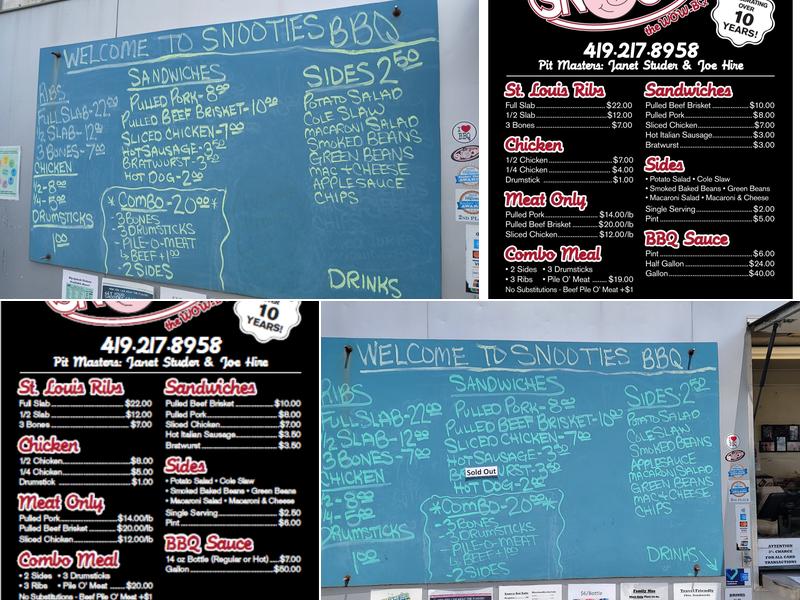 WELCOME TO SNOOTIES BBQ
RIBS
FULL SLAB-22.00
½ SLAB-12.00
3 BONES-7.00
CHICKEN
½-8.00
¼-5.00
DRUMSTICKS
1.00
SANDWICHES
PULLED PORK-8.00
PULLED BEEF BRISKET-10.00
SLICED CHICKEN-7.00
HOT SAUSAGE-3.50
BRATWURST-3.50
HOT DOG-2.00
*COMBO-20.00*
-3 BONES
-3 DRUMSTICKS
-PILE-O-MEAT
↳BEEF+1.00
-2 SIDES
SIDES 2.50
POTATO SALAD
COLE SLAW
MACARONI SALAD
SMOKED BEANS
GREEN BEANS
MAC + CHEESE
APPLESAUCE
CHIPS
DRINKS
the WOW-BQ
OVER
10
YEARS!
419-217-8958
Pit Masters: Janet Studer & Joe Hire
St. Louis Ribs
Full Slab $22.00
1/2 Slab $12.00
3 Bones $7.00
Chicken
1/2 Chicken $7.00
1/4 Chicken $4.00
Drumstick $1.00
Meat Only
Pulled Pork $14.00/lb
Pulled Beef Brisket $20.00/lb
Sliced Chicken $12.00/lb
Combo Meal
• 2 Sides • 3 Drumsticks
• 3 Ribs • Pile O' Meat $19.00
No Substitutions - Beef Pile O' Meat +$1
Sandwiches
Pulled Beef Brisket $10.00
Pulled Pork $8.00
Sliced Chicken $7.00
Hot Italian Sausage $3.00
Bratwurst $3.00
Sides
• Potato Salad • Cole Slaw
• Smoked Baked Beans • Green Beans
• Macaroni Salad • Macaroni & Cheese
Single Serving $2.00
Pint $5.00
BBQ Sauce
Pint $6.00
Half Gallon $24.00
Gallon $40.00
the WOW-BQ
10
YEARS!
419-217-8958
Pit Masters: Janet Studer & Joe Hire
St. Louis Ribs
Full Slab $22.00
1/2 Slab $12.00
3 Bones $7.00
Chicken
1/2 Chicken $8.00
1/4 Chicken $5.00
Drumstick $1.00
Meat Only
Pulled Pork $14.00/lb
Pulled Beef Brisket $20.00/lb
Sliced Chicken $12.00/lb
Combo Meal
• 2 Sides • 3 Drumsticks
• 3 Ribs • Pile O' Meat $20.00
No Substitutions - Beef Pile O' Meat +$1
Sandwiches
Pulled Beef Brisket $10.00
Pulled Pork $8.00
Sliced Chicken $7.00
Hot Italian Sausage $3.50
Bratwurst $3.50
Sides
• Potato Salad • Cole Slaw
• Smoked Baked Beans • Green Beans
• Macaroni Salad • Macaroni & Cheese
Single Serving $2.50
Pint $6.00
BBQ Sauce
14 oz Bottle (Regular or Hot) $7.00
Gallon $50.00
WELCOME TO SNOOTIES BBQ
RIBS
FULL SLAB-22.00
½ SLAB-12.00
3 BONES-7.00
CHICKEN
½-8.00
¼-5.00
DRUMSTICKS
1.00
SANDWICHES
PULLED PORK-8.00
PULLED BEEF BRISKET-10.00
SLICED CHICKEN-7.00
HOT SAUSAGE-3.50
Sold Out
HOT DOG-2.00
*COMBO-20.00*
-3 BONES
-3 DRUMSTICKS
-PILE-O-MEAT
-2 SIDES
SIDES-2.50
POTATO SALAD
SLAW
SMOKED BEANS
APPLESAUCE
MACARONI SALAD
GREEN BEANS
MAC & CHEESE
CHIPS
DRINKS
ATTENTION
3% CHARGE
FOR ALL CARD
TRANSACTIONS
$6/Bottle